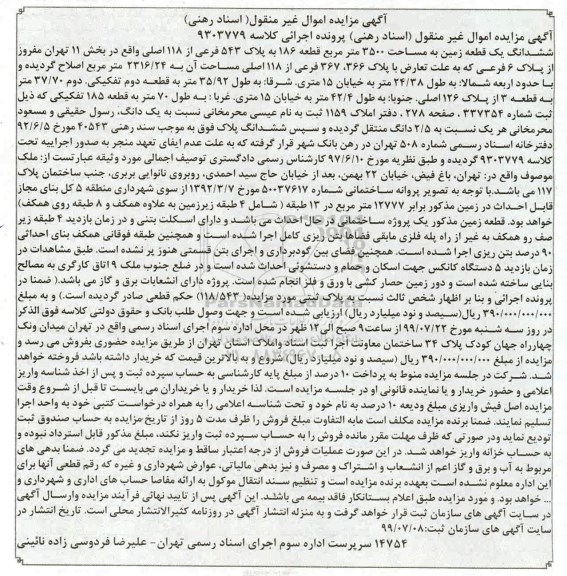 آگهی مزایده اموال غیر منقول( اسناد رهنی)
آگهی مزایده اموال غیر منقول (اسناد رهنی) پرونده اجرائی کلاسه ۹۳۰۳۷۷۹
ششدانگ یک قطعه زمین به مساحت ۳۵۰۰ متر مربع قطعه ۱۸۶ به پلاک ۵۴۳ فرعی از ۱۱۸ اصلی واقع در بخش ۱۱ تهران مفروز
از پلاک ۶ فرعی که به علت تعارض با پلاک ۳۶۶، ۳۶۷ فرعی از ۱۱۸ اصلی مساحت آن به ۲۳۱۶/۲۴ متر مربع اصلاح گردیده و
با حدود اربعه شمالا: به طول ۲۴/۳۸ متر به خیابان ۱۵ متری. شرقا: به طول ۳۵/۹۲ متر به قطعه دوم تفکیکی. دوم ۳۷/۷۰ متر
به قطعه ۳ از پلاک ۱۲۶ اصلی. جنوبا: به طول ۴۲/۴ متر به خیابان ۱۵ متری. غربا : به طول ۷۰ متر به قطعه ۱۸۵ تفکیکی که ذیل
ثبت شماره ۳۳۷۳۵۴ ، صفحه ۲۷۸ ، دفتر املاک ۱۱۵۹ ثبت به نام عیسی محرمخانی نسبت به یک دانگ، رسول حقیقی و مسعود
محرمخانی هر یک نسبت به ۲/۵ دانگ منتقل گردیده و سپس ششدانگ پلاک فوق به موجب سند رهنی ۴۰۵۴۳ مورخ ۹۲/۶/۵
دفترخانه اسناد رسمی شماره ۵۰۸ تهران در رهن بانک شهر قرار گرفته که به علت عدم ایفای تعهد منجر به صدور اجراییه تحت
کلاسه ۹۳۰۳۷۷۹ گردیده و طبق نظریه مورخ ۹۷/۶/۱۰ کارشناس رسمی دادگستری توصیف اجمالی مورد وثیقه عبارتست از: ملک
موصوف واقع در: تهران، باغ فیض، خیابان ۲۲ بهمن، بعد از خیابان حاج سید احمدی، روبروی نانوایی بربری، جنب ساختمان پلاک
۱۱۷ می باشد.با توجه به تصویر پروانه ساختمانی شماره ۵۰۰۳۷۶۱۷ مورخ ۱۳۹۲/۳/۷ از سوی شهرداری منطقه ۵ کل بنای مجاز
قابل احداث در زمین مذکور برابر ۱۲۷۷۷ متر مربع در ۱۳ طبقه ( شامل ۴ طبقه زیرزمین به علاوه همکف و ۸ طبقه روی همکف)
خواهد بود. قطعه زمین مذکور یک پروژه ساختمانی در حال احداث می باشد و دارای اسکلت بتنی و در زمان بازدید ۴ طبقه زیر
صف رو همکف به غیر از راه پله فلزی مابقی فضاها بتن ریزی کامل اجرا شده است و همچنین طبقه فوقانی همکف بنای احداثی
۹۰ درصد بتن ریزی اجرا شده است. همچنین فضای بین گودبرداری و اجرای بتن قسمتی هنوز پر نشده است. طبق مشاهدات در
زمان بازدید ۵ دستگاه کانکس جهت اسکان و حمام و دستشوئی احداث شده است و در ضلع جنوب ملک ۹ اتاق کارگری به مصالح
بنایی ساخته شده است و دور زمین حصار کشی با ورق و فلز انجام شده است. پروژه دارای انشعابات برق و گاز می باشد.( ضمنا در
پرونده اجرائی و بنا بر اظهار شخص ثالث نسبت به پلاک ثبتی مورد مزایده( ۱۱۸/۵۴۳) حکم قطعی صادر گردیده است.) و به مبلغ
۳۹۰/۰۰۰/۰۰۰/۰۰۰ ریال(سیصد و نود میلیارد ریال) ارزیابی شده است و جهت وصول طلب بانک و حقوق دولتی کلاسه فوق الذکر
در روز سه شنبه مورخ ۹۹/۰۷/۲۲ از ساعت۹ صبح الی۱۲ ظهر در محل اداره سوم اجرای اسناد رسمی واقع در تهران میدان ونک
چهارراه جهان کودک پلاک ۳۴ ساختمان معاونت اجرا ثبت اسناد واملاک استان تهران از طریق مزایده حضوری بفروش می رسد و
مزایده از مبلغ ۳۹۰/۰۰۰/۰۰۰/۰۰۰ ریال (سیصد و نود میلیارد ریال) شروع و به بالاترین قیمت که خریدار داشته باشد فروخته خواهد
شد. شرکت در جلسه مزایده منوط به پرداخت ۱۰ درصد از مبلغ پایه کارشناسی به حساب سپرده ثبت و پس از اخذ شناسه واریز
اعلامی و حضور خریدار و یا نماینده قانونی او در جلسه مزایده است. لذا خریدار و یا خریداران می بایست تا قبل از شروع وقت
مزایده اصل فیش واریزی مبلغ ودیعه ۱۰ درصد به نام خود و تحت شناسه اعلامی را به همراه درخواست کتبی خود به واحد اجرا
تسلیم نمایند. ضمنا برنده مزایده مکلف است مابه التفاوت مبلغ فروش را ظرف مدت ۵ روز از تاریخ مزایده به حساب صندوق ثبت
تودیع نماید ودر صورتی که ظرف مهلت مقرر مانده فروش را به حساب سپرده ثبت واریز نکند، مبلغ مذکور قابل استرداد نبوده و
به حساب خزانه واریز خواهد شد. در این صورت عملیات فروش از درجه اعتبار ساقط و مزایده تجدید می گردد. ضمنا بدهی های
مربوط به آب و برق و گاز اعم از انشعاب و اشتراک و مصرف و نیز بدهی مالیاتی، عوارض شهرداری و غیره که رقم قطعی آنها برای
این اداره معلوم نشده است بعهده برنده مزایده است و تنظیم سند انتقال موکول به ارائه مفاصا حساب های اداری و شهرداری و
... خواهد بود. و مورد مزایده طبق اعلام بستانکار فاقد بیمه می باشد. این آگهی پس از تایید نهائی فرآیند مزایده وارسال آگهی
در سایت آگهی های سازمان ثبت قرار خواهد گرفت و به منزله انتشار آگهی در روزنامه کثیرالانتشار محلی است. تاریخ انتشار در
سایت آگهی های سازمان ثبت:۹۹/۰۷/۰۸
۱۴۷۵۴ سرپرست اداره سوم اجرای اسناد رسمی تهران- علیرضا فردوسی زاده نائینی